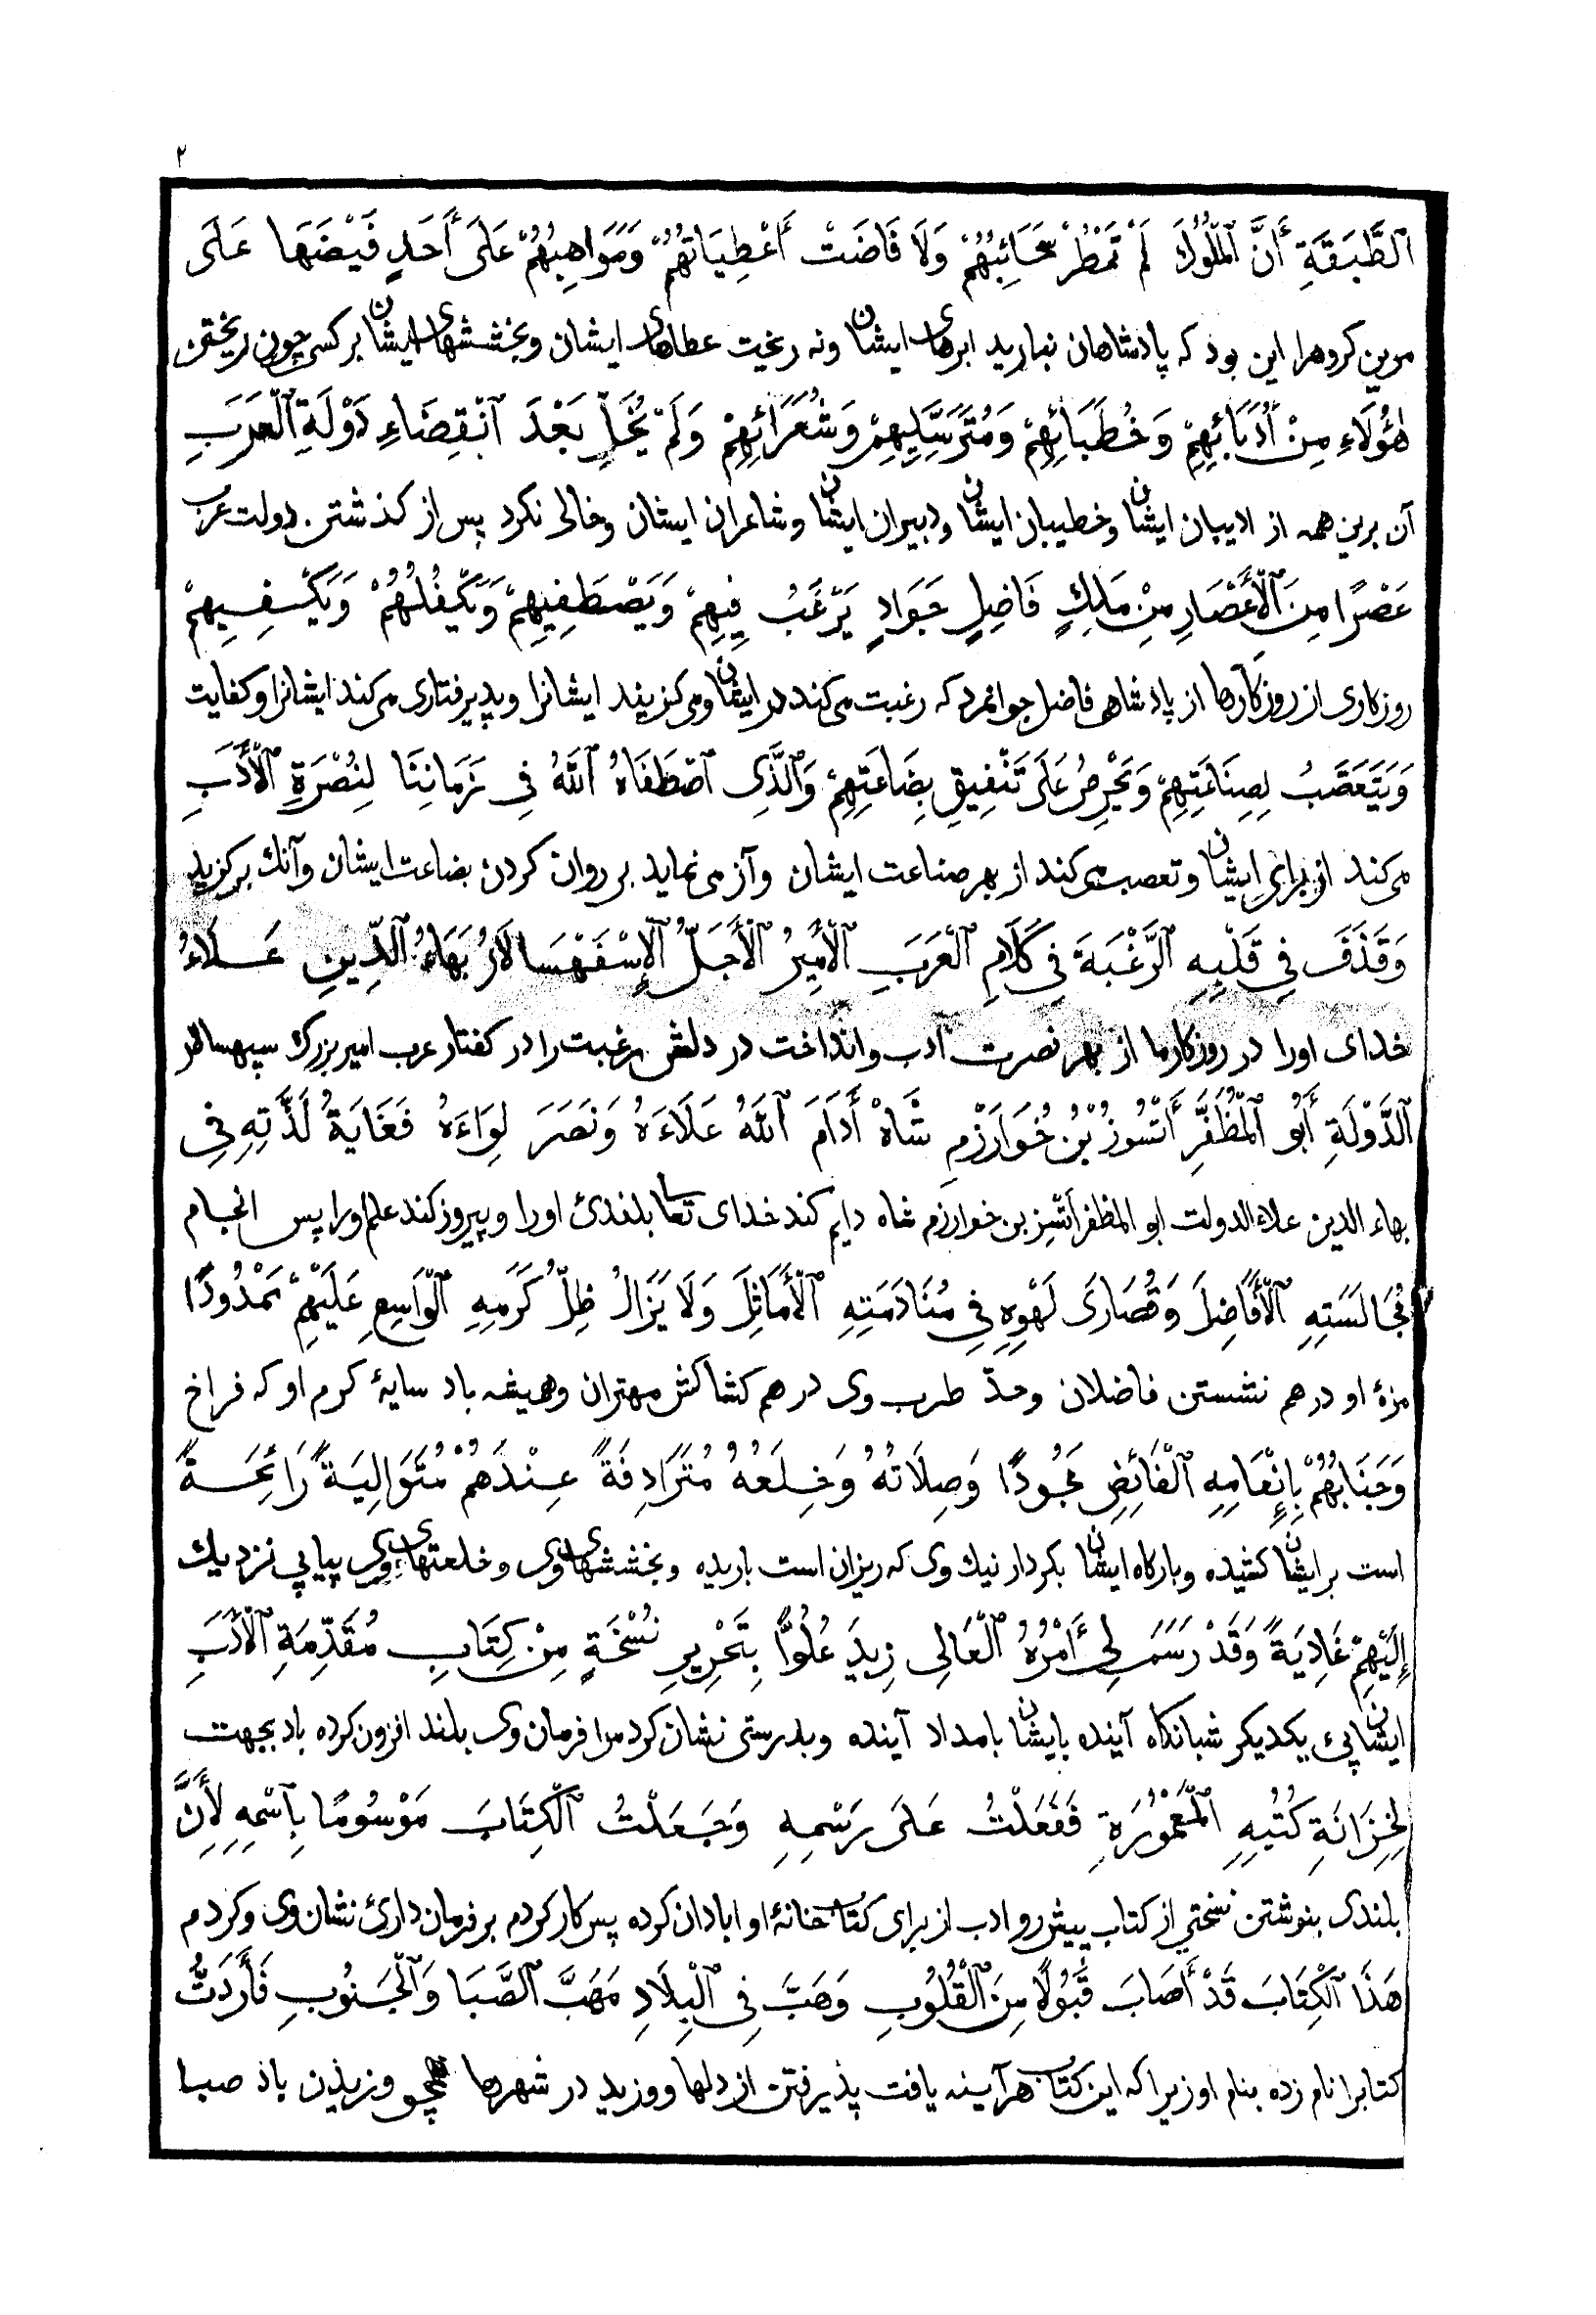 ٢
ٱلطَّبَقَةِ أَنَّ ٱلْمُلُوكَ لَمْ تَمْطُرْ سَحَائِبُهُمْ وَلَا فَاضَتْ أَعْطِيَاتُهُمْ وَمَوَاهِبُهُمْ عَلَى أَحَدٍ فَيْضَهَا عَلَى
مرین کروهرا این بود که پادشاهان نبارید ابرهای ایشان ونه ریخت عطاهای ایشان وبخششهای ایشان بر کسی چون ریختن
هٰؤُلَاءِ مِنْ أُدَبَائِهِمْ وَخُطَبَائِهِمْ وَمُتَرَسِّلِيهِمْ وَشُعَرَائِهِمْ وَلَمْ يُخَلِّ بَعْدَ ٱنْقِضَاءِ دَوْلَةِ ٱلْعَرَبِ
آن برین همه از ادیبان ایشان وخطیبان ایشان ودبیران ایشان وشاعران ایشان وخالی نکرد پس از کذشتن دولت عرب
عَصْرًا مِنَ ٱلْأَعْصَارِ مِنْ مَلِكٍ فَاضِلٍ جَوَادٍ يَرْغَبُ فِيهِمْ وَيَصْطَفِيهِمْ وَيَكْفُلُهُمْ وَيَكْفِيهِمْ
روزکاری از روزکارها از پادشاهی فاضل جوانمرد که رغبت می کند در ایشان ومی کزیند ایشانرا وپدیرفتاری می کند ایشانرا وکفایت
وَيَتَعَصَّبُ لِصِنَاعَتِهِمْ وَيَحْرِصُ عَلَى تَنْفِيقِ بِضَاعَتِهِمْ وَٱلَّذِى ٱصْطَفَاهُ ٱللّٰهُ فِى زَمَانِنَا لِنُصْرَةِ ٱلْأَدَبِ
می کند از برای ایشان وتعصب می کند از بهر صناعت ایشان وآز می نماید بر روان کردن بضاعت ایشان وآنك برکزید
وَقَذَفَ فِى قَلْبِهِ ٱلرَّغْبَةَ فِى كَلَامِ ٱلْعَرَبِ ٱلْأَمِيرُ ٱلْأَجَلُّ ٱلْإِسْفَهْسَالَارُ بَهَاءُ ٱلدِّينِ عَلَاءُ
خدای اورا در روزکار ما از بهر نصرت ادب وانداخت در دلش رغبت را در کفتار عرب امیر بزرك سپهسالار
ٱلدَّوْلَةِ أَبُو ٱلْمُظَفَّرِ أَتْسُوزْ بْنُ خُوَارَزْمِ شَاهْ أَدَامَ ٱللّٰهُ عَلَاءَهُ وَنَصَرَ لِوَاءَهُ فَغَايَةُ لَذَّتِهِ فِى
بهاء الدین علاء الدولت ابو المظفر اتسز بن خوارزم شاه دایم کند خدای تعا بلندئ اورا وپیروز کند علم اورا پس انجام
مُجَالَسَتِهِ ٱلْأَفَاضِلَ وَقُصَارَى لَهْوِهِ فِى مُنَادَمَتِهِ ٱلْأَمَاثِلَ وَلَا يَزَالُ ظِلُّ كَرَمِهِ ٱلْوَاسِعِ عَلَيْهِمْ مَمْدُودًا
مزۀ او در هم نشستن فاضلان وحدّ طرب وی در هم کشاکش مهتران وهمیشه باد سایۀ کرم او که فراخ
وَجَنَابُهُمْ بِإِنْعَامِهِ ٱلْفَائِضِ مَجُودًا وَصِلَاتُهُ وَخِلَعُهُ مُتَرَادِفَةً عِنْدَهُمْ مُتَوَالِيَةً رَائِحَةً
است بر ایشان کشیده وبارکاه ایشان بکردار نیك وی که ریزان است باریده وبخششهای وی وخلعتهای وی پیاپی نزدیك
إِلَيْهِمْ غَادِيَةً وَقَدْ رَسَمَ لِى أَمْرُهُ ٱلْعَالِى زِيدَ عُلُوًّا بِتَحْرِيرِ نُسْخَةٍ مِنْ كِتَابِ مُقَدِّمَةِ ٱلْأَدَبِ
ایشان پئ یکدیکر شبانکاه آینده بایشان بامداد آینده وبدرستی نشان کرد مرا فرمان وی بلند افزون کرده باد بجهت
لِخِزَانَةِ كُتُبِهِ ٱلْمَعْمُورَةِ فَفَعَلْتُ عَلَى رَسْمِهِ وَجَعَلْتُ ٱلْكِتَابَ مَوْسُومًا بِٱسْمِهِ لِأَنَّ
بلندی بنوشتن نسختی از کتاب پیش رو ادب از برای کتاب خانۀ او ابادان کرده پس کار کردم بر فرمان دارئ نشان وی وکردم
هَذَا ٱلْكِتَابَ قَدْ أَصَابَ قَبُولًا مِنَ ٱلْقُلُوبِ وَهَبَّ فِى ٱلْبِلَادِ مَهَبَّ ٱلصَّبَا وَٱلْجَنُوبِ فَأَرَدتُّ
کتابرا نام زده بنام او زیرا که این کتاب هرآینه یافت پذیرفتن از دلها ووزید در شهرها همچو وزیدن باد صبا